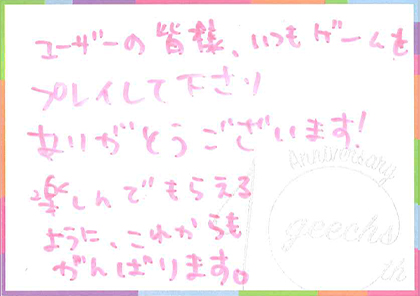 ユーザーの皆様、いつもゲームを
プレイして下さり
ありがとうございます!
楽しんでもらえる
ように、これからも
がんばります。
Anniversary
geechs
th